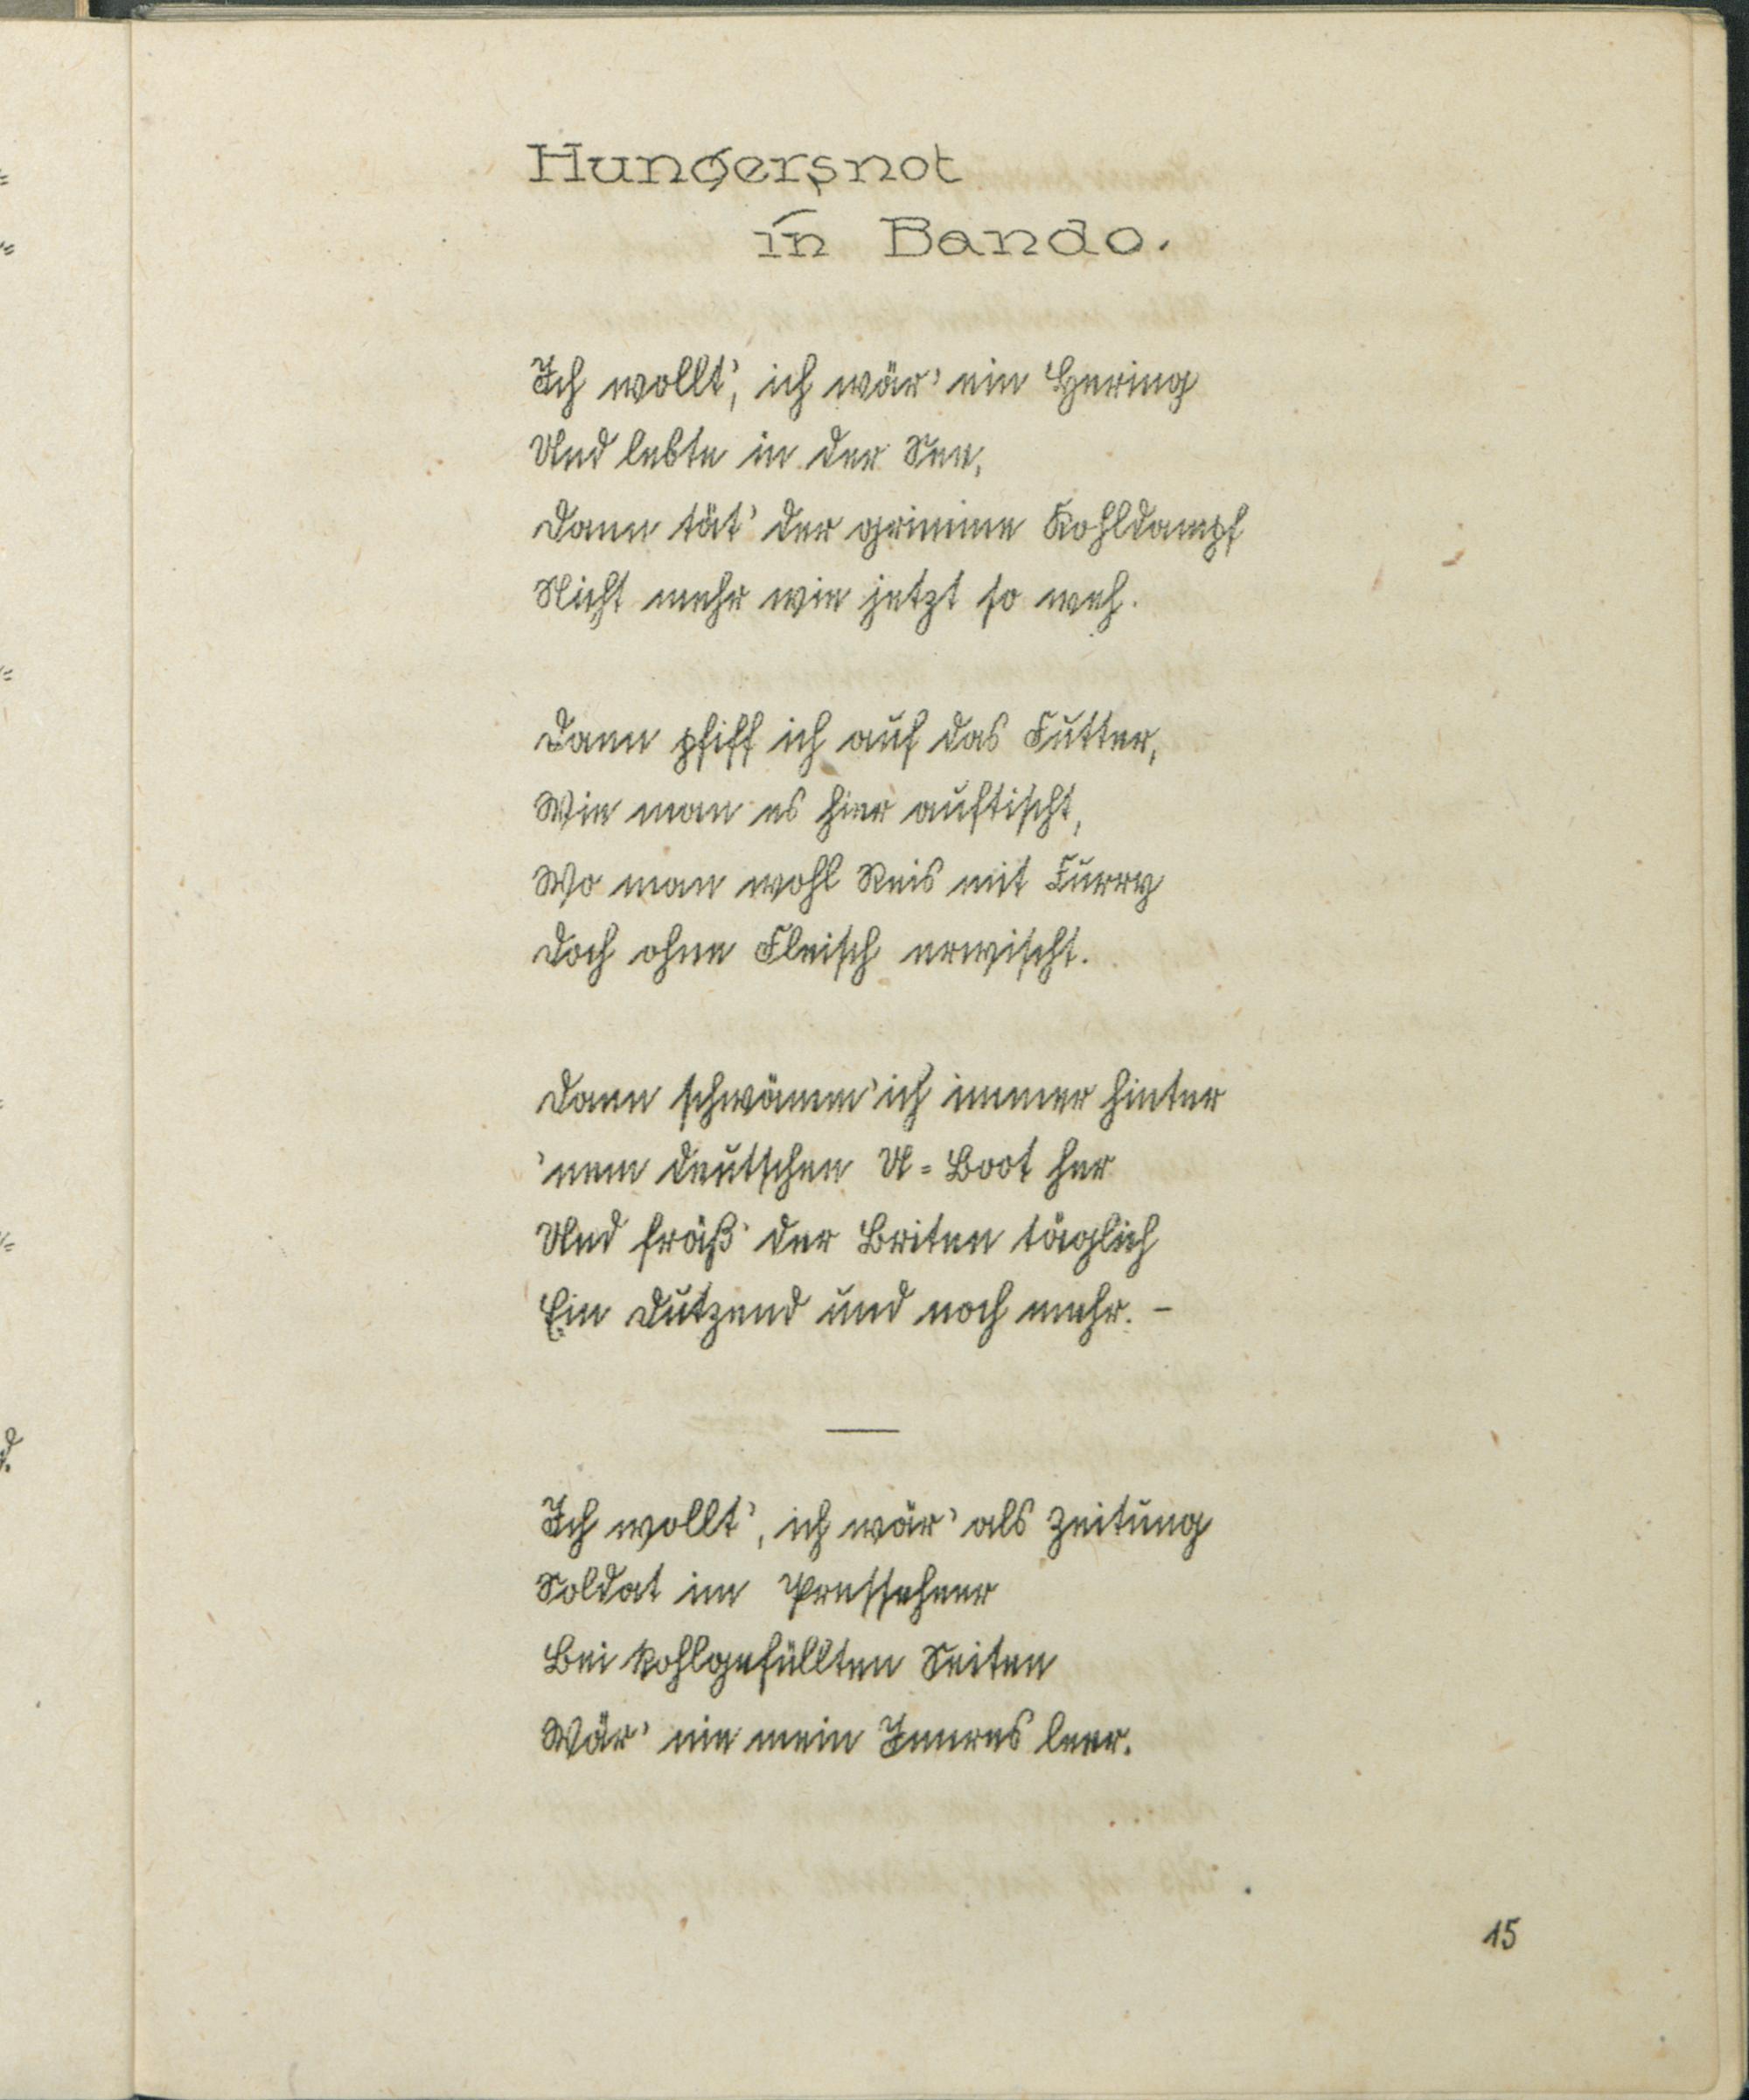 Hungersnot
in Bando.
Ich wollt', ich wär' ein Hering
Und lebte in der See,
Dann tät' der grimme Kohldampf
Nicht mehr wie jetzt so weh.
Dann pfiff ich auf das Futter,
Wie man es hier auftischt,
Wo man wohl Reis mit Curry
Doch ohne Fleisch erwischt.
Dann schwämm' ich immer hinter
'nem deutschen U-Boot her
Und fräß' der Briten täglich
Ein Dutzend und noch mehr. –
Ich wollt', ich wär' als Zeitung
Soldat im Presseheer
Bei kohlgefüllten Seiten
Wär' nie mein Innres leer.
15